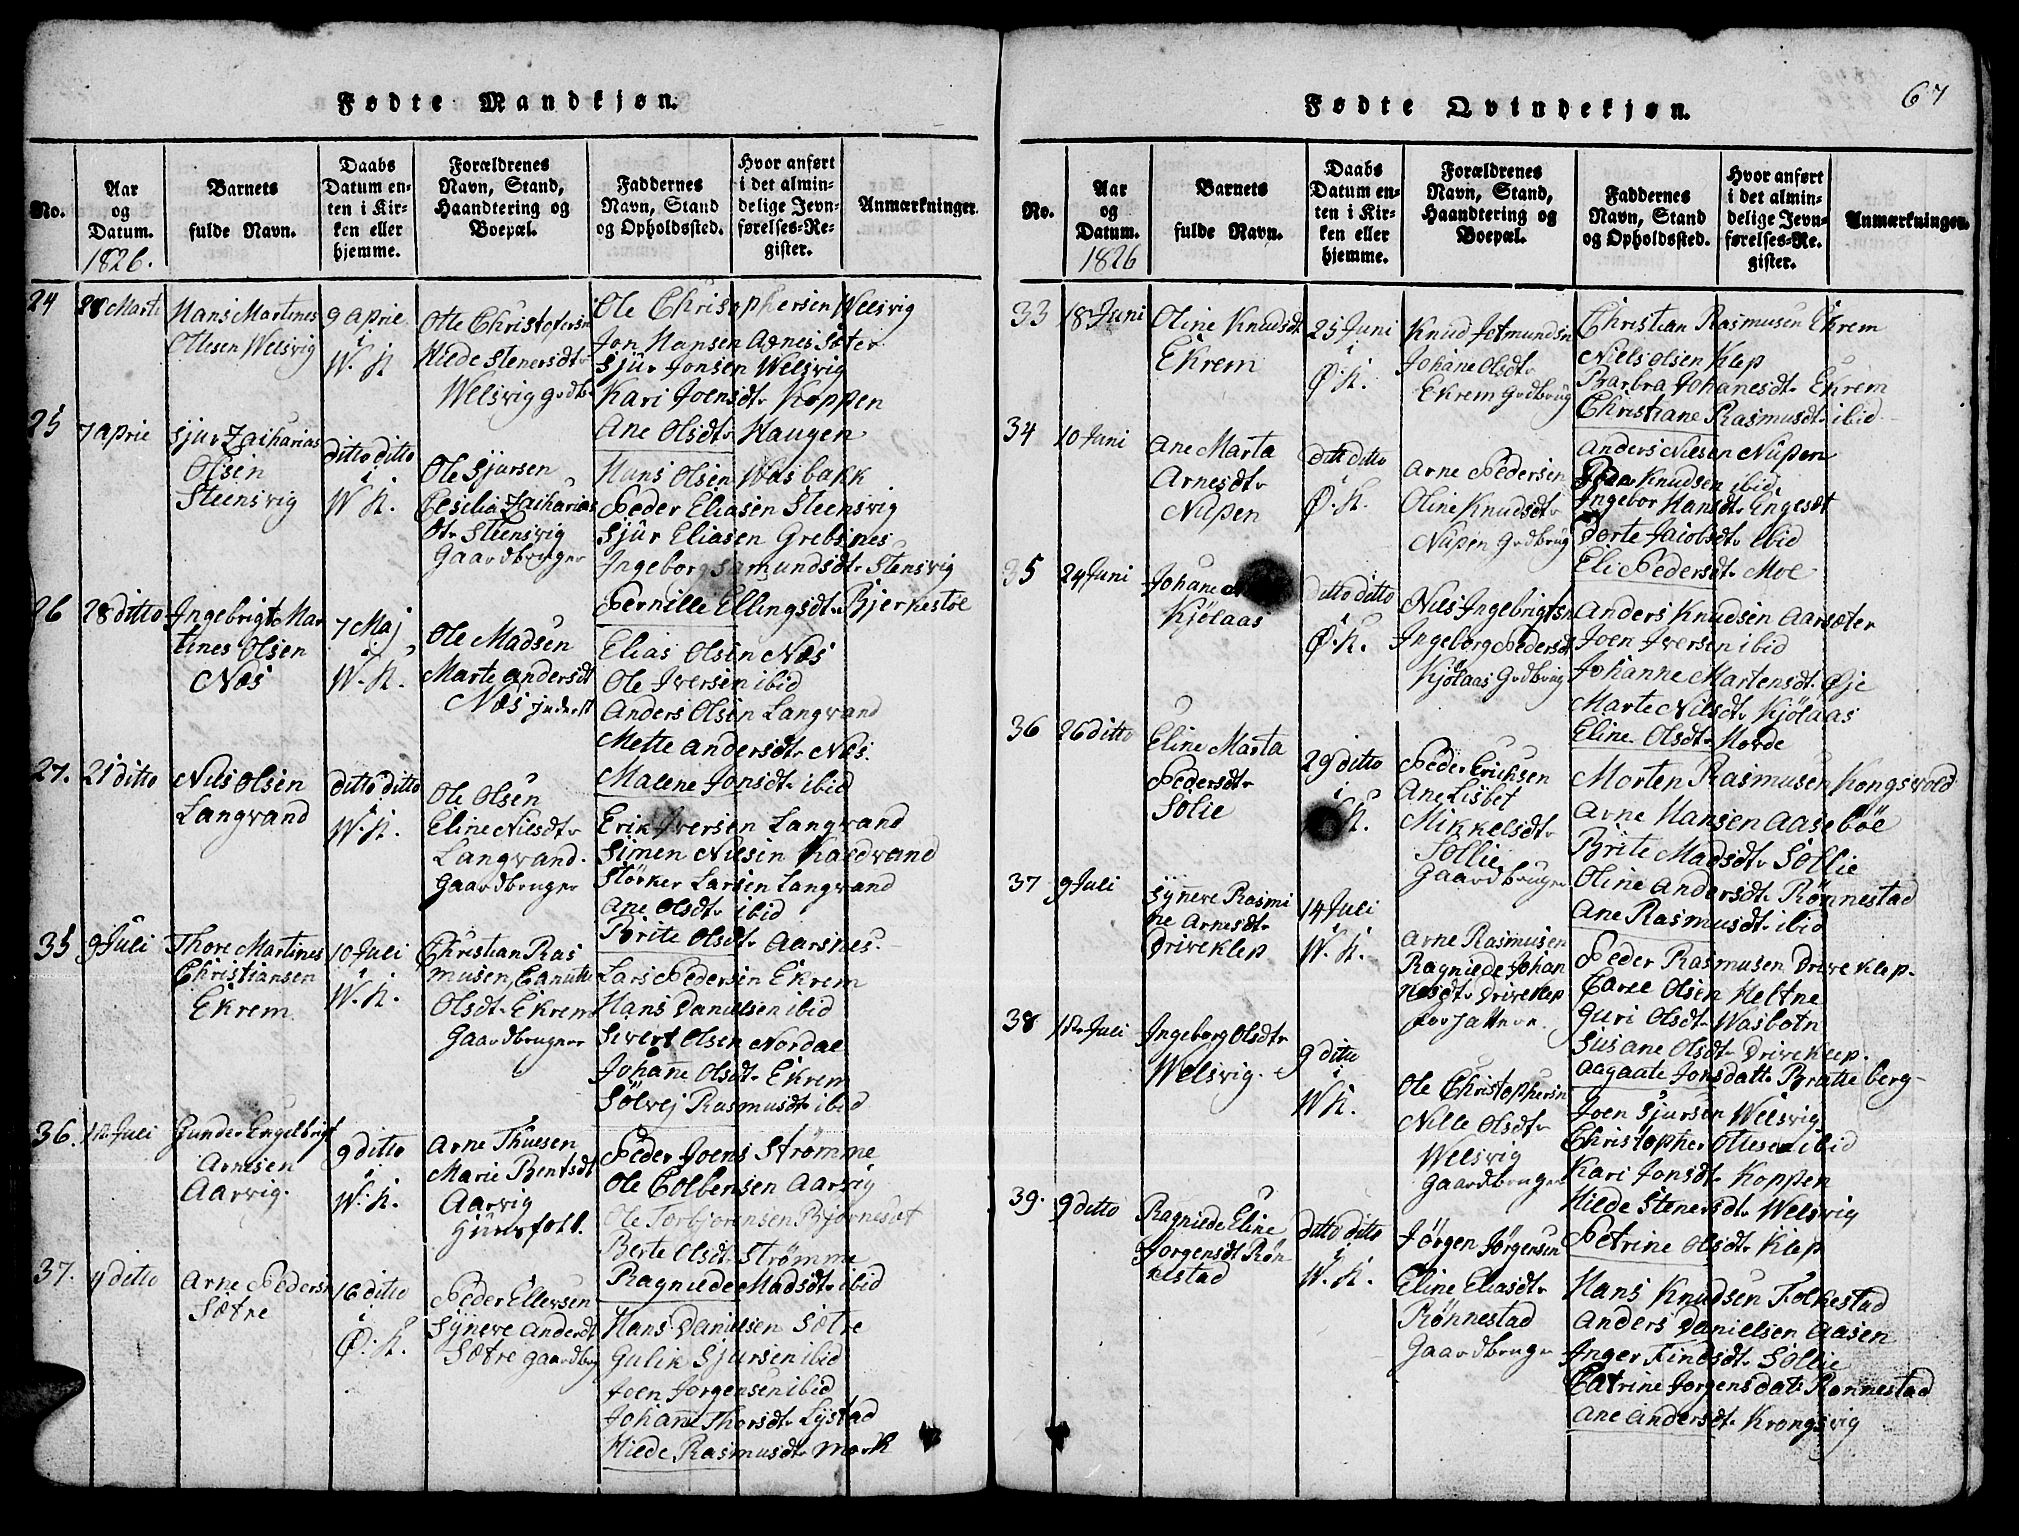 Fødte Mandkjøn.
No.
Aar
og
Datum.
1826.
Barnets
fulde Navn.
Daabs
Datum en-
ten i Kir-
ken eller
hjemme.
Forældrenes
Navn, Stand,
Haandtering og
Boepæl.
Faddernes
Navn, Stand
og Opholdssted.
Hvor anført
i det almin-
delige Jevn-
førelses-Re-
gister.
Anmærkninger.
24
28 Marti
Hans Martines
Ottesen Welsvig
9 aprie
i
W. K
Otte Christofersn
Hilde Stenersdtr
Welsvig grdb.
Ole Christophersen Welsvig
Jon Hansen Agnes Sæter
Sjur Jonsen Welsvig
Kari Joensdtr Koppen
Ane Olsdtr Haugen
25
7 aprie
Sjur Zacharias
Olsen
Steensvig
ditto ditto
i
W K.
Ole Sjursen
Cesilia Zacharias
dtr Steensvig
Gaardbruger
Hans Olsen Wasbakk
Peder Eliasen Steensvig
Sjur Eliasen Grebsnes
Ingeborg Samundsdtr Stensvig
Pernille Ellingsdtr Bjernestøe
26
28 ditto
Ingebrigt Mar
tines Olsen
Næs
7 Maj
i
W. K.
Ole Madsen
Marte andersdt
Næs inderst
Elias Olsen Næs
Ole Iversen ibid
Anders Olsen Langvand
Mette andersdtr Næs.
Malene Jonsdtr ibid
27.
21 ditto
Nils Olsen
Langvand
ditto ditto
i
W. K.
Ole Olsen
Eline Nilsdtr
Langvand.
Gaardbruger
Erik Iversen Langvand
Simen Nilsen Kaldvand
Størker Larsen Langvand
Ane Olsdtr ibid
Brite Olsdtr Aarsnes.
35
9 Juli
Thore Martines
Christiansen
Ekrem
10 Juli
i
W. K.
Christian Ras
musen, Canutte
Olsdt. Ekrem
Gaardbruger
Lars Pedersen Ekrem
Hans Danielsen ibid
Sivert Olsen Nordal
Johane Olsdt. Ekrem
Sølvej Rasmusdtr ibid
36.
Juli
Gunder Engelbrigt
Arnesen
Aarvig.
9 ditto
i
W. K.
Arne Thuesen
Marie Bentsdt
Aarvig
Huusfolk.
Peder Joens Strømme
Ole Colbensen Aarvig
Ole Torbjørensen Bjørneset
Berte Olsdt. Strømme
Ragniede Madsdtr ibid
37.
11 ditto
Arne Pedersn
Sætre
16 ditto
i
Ø. K.
Peder Ellevsen
Synere Anderdt
Sætre gaardbrug
Hans Danielsen Sætre
Gulik Sjursen ibid
Joen Jorgensen ibid
Johane Thorsdtr Lystad
Hilde Rasmusdtr Mork
Fødte Qvindekjøn.
67
No.
Aar
og
Datum.
1826
Barnets
fulde Navn.
Daabs
Datum en-
ten i Kir-
ken eller
hjemme.
Forældrenes
Navn, Stand,
Haandtering og
Boepæl.
Faddernes
Navn, Stand
og Opholdssted.
Hvor anført
i det almin-
delige Jevn-
førelses-Re-
gister.
Anmærkninger.
33
18 Juni
Oline Knudsdt
Ekrem
25 Juni
i
Ø. K.
Knud Jetmundsn
Johane Olsdtr
Ekrem Grdbrug
Christian Rasmusen Ekrem
Niels Olsen Klep
Barbra Johanesdtr Ekrem
Christiane Rasmusdtr ibid
34
10 Juni
Ane Marta
Arnesdtr
Nupen
ditto ditto
i
Ø. K.
Arne Pedersen
Oline Knudsdtr
Nupen Grdbrug
Anders Nilsen Nupen
Knudsen ibid
Ingebor Hansdtr Engesdt
Dorte Jacobsdtr ibid
Eli Pedersdtr Moe
35
24 Juni
Johane
Kjölaas
Ditto ditto
i
Ø. K.
Nils Ingebrigtsn
Ingeborg Pedersdt
Kjölaas Grdbrug
Anders Knudsen Aarsæter
Joen Iversen ibid
Johanne Martensdtr Øje
Marte Nilsdtr Kjölaas
Eline Olsdtr Horde
36
26 ditto
Eline Marta
Pedersdtr
Solie
29 ditto
i
K.
Peder Erichsen
Ane Lisbet
Mikkelsdtr
Sollie
Gaardbruger
Morten Rasmusen Kongsvold
Arne Hansen Aasebøe
Brite Madsdtr Sollie
Oline Andersdtr Rønnestad
Ane Rasmusdtr ibid
37
9 Juli
Synere Rasmi
ne Arnesdtr
Driveklep
14 Juli
i
W. K.
Arne Rasmusen
Ragniede Johan
nesdtr Driveklep
Peder Rasmusen Driveklep.
Carel Olsen Heltne
Guri Olsdtr Wasbotn
Susane Olsdtr Driveklep.
Aagaate Jonsdattr Bratteberg
38
Juli
Ingeborg Olsdtr
Welsvig.
9 ditto
i
W K.
Ole Christophersn
Nille Olsdtr
Welsvig
Gaardbruger
Joen Sjursen Welsvig
Christopher Ottesen ibid
Kari Jonsdtr Koppen
Hilde Stenersdtr Welsvig
Petrine Olsdtr Klep
39.
9 ditto
Ragniede Eline
Jorgensdt Røn
nestad
ditto ditto
i
W. K.
Jørgen Jørgensen
Eline Eliasdtr
Rønnestad
Gaardbruger
Hans Knudsen Folkestad
Anders Danielsen Aasen
Inger Findsdtr Sollie
Catrine Jorgensdatr Rønnestad
Ane Andersdtr Krongsvig